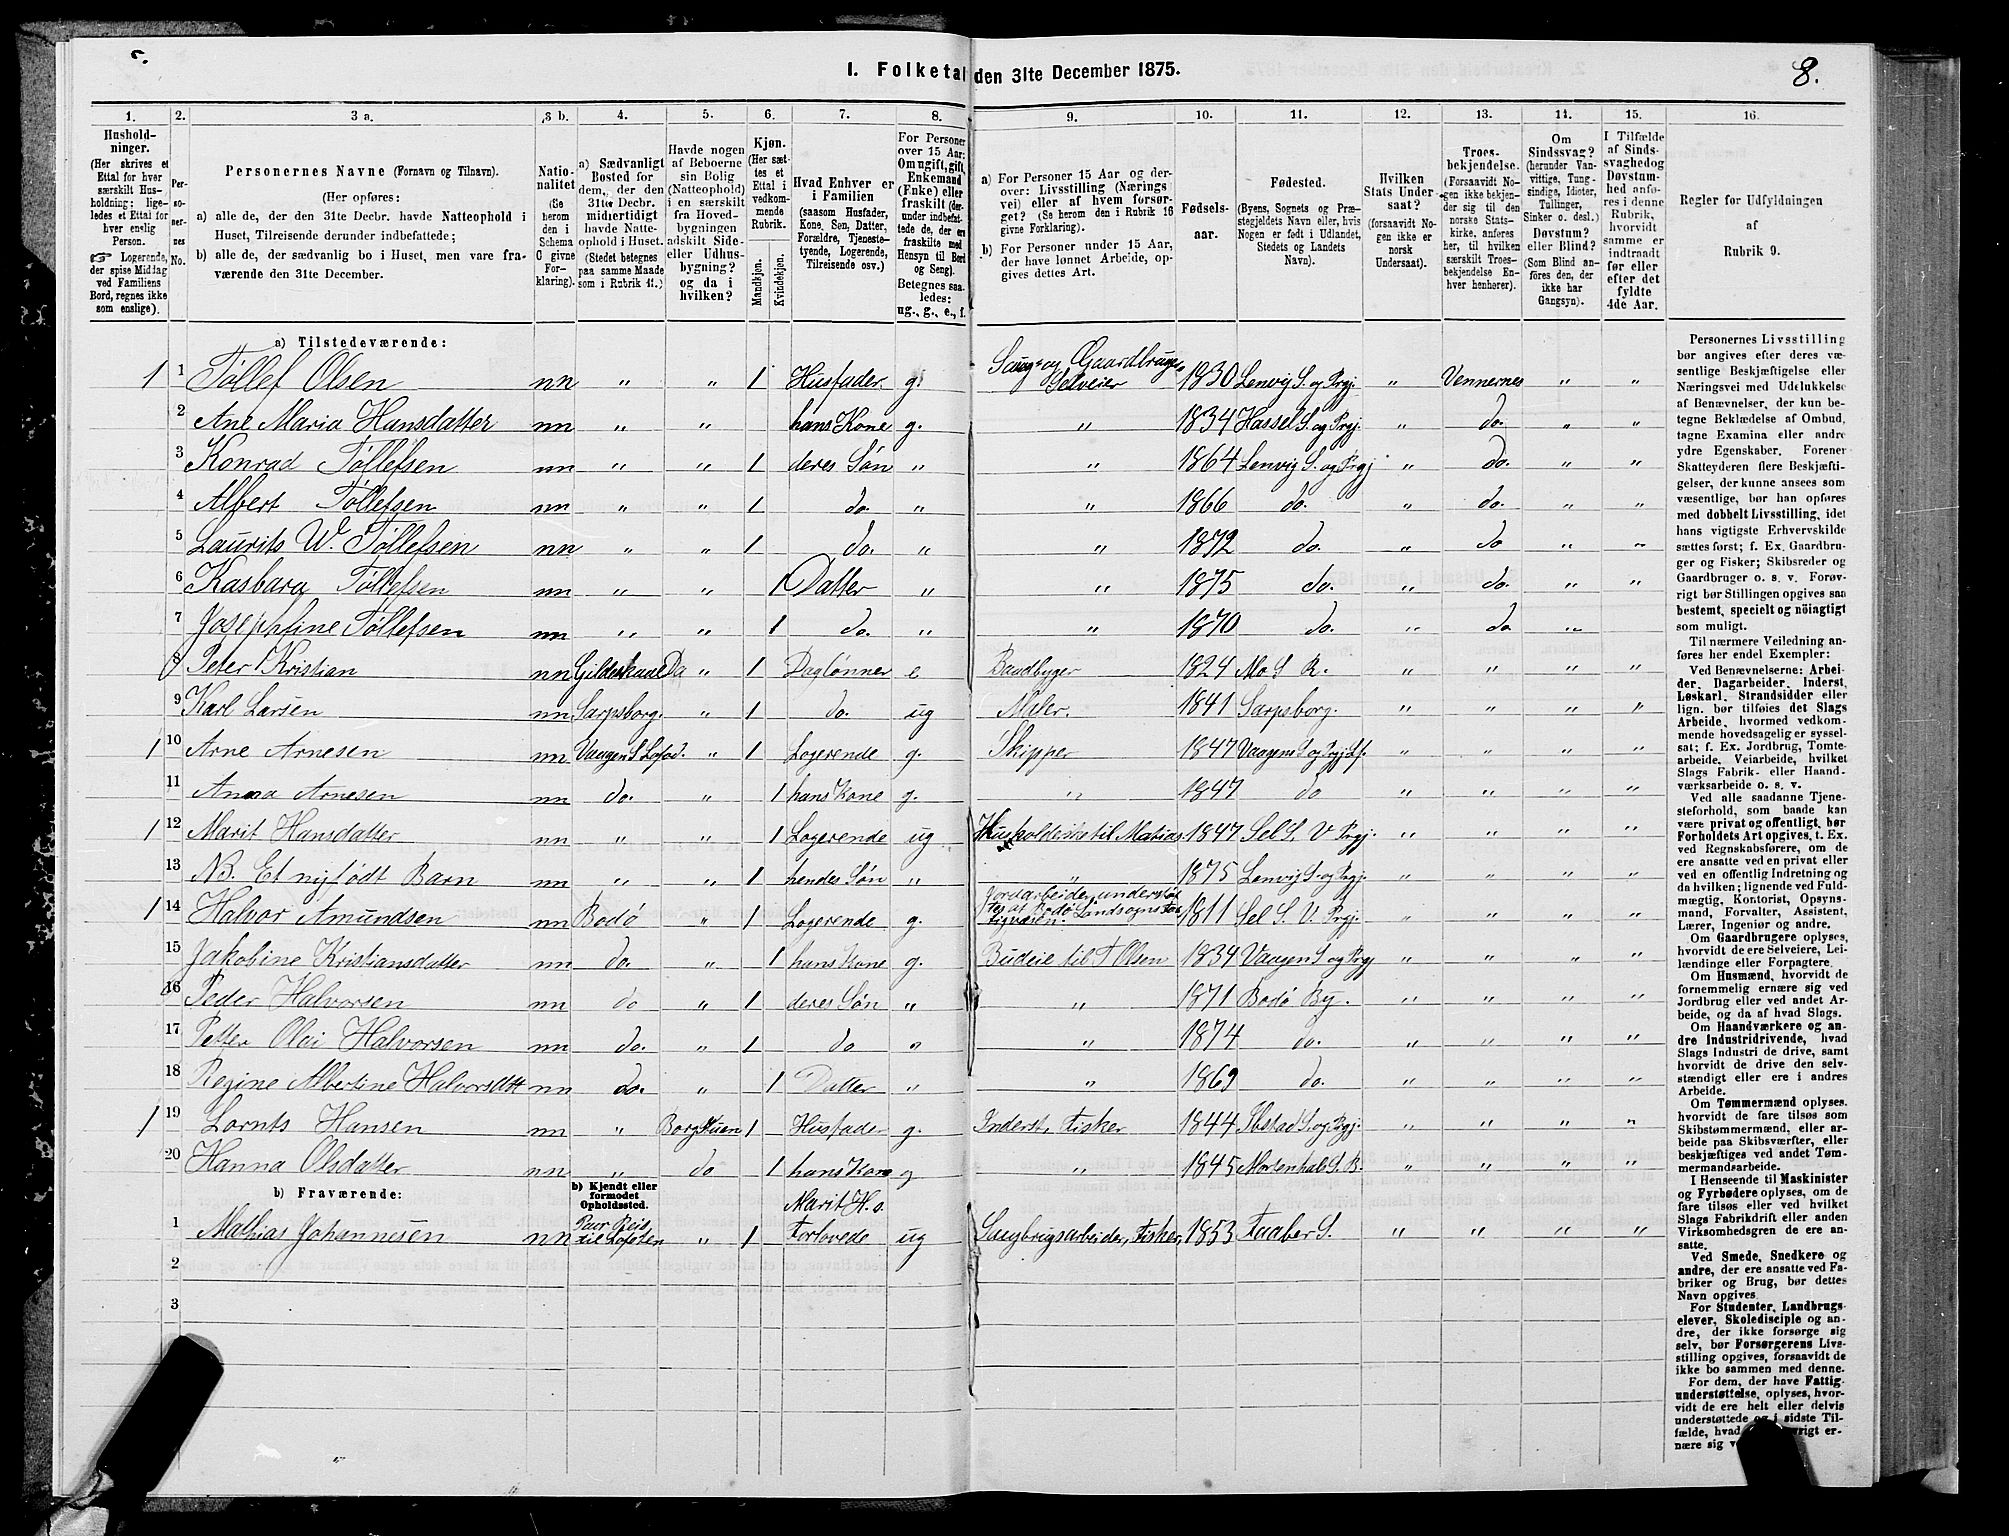 8.
1. Folketal den 31te December 1875.
1.
Hushold-
ninger.
(Her skrives et
Ettal for hver
særskilt Hus-
holdning: lige-
ledes et Ettal for
hver enslig
Person.
Logerende,
der spise Middag
ved Familiens
Bord, regnes ikke
som enslige).
2.
Per-
so-
ner-
nes
No.
3 a.
Personernes Navne (Fornavn og Tilnavn).
(Her opføres:
a) alle de, der den 31te Decbr. havde Natteophold i
Huset, Tilreisende derunder indbefattede;
b) alle de, der sædvanlig bo i Huset, men vare fra-
værende den 31te December.
3 b.
Natio-
nalitet
(Se
herom
den i
Schema
C givne
For-
klaring).
4.
a) Sædvanligt
Bosted for
dem, der den
31te Decbr.
midlertidigt
havde Natte-
ophold i Huset.
(Stedet betegnes
paa samme Maade
som i Rubrik 11.)
5.
Havde nogen
af Beboerne
sin Bolig
(Natteophold)
i en særskilt
fra Hoved-
bygningen
adskilt Side-
eller Udhus-
bygning?
og da i
hvilken?
6.
Kjøn.
(Her sæt-
tes et
Ettal i
vedkom-
mende
Rubrik.
Mandkjøn.
Kvindekjøn.
7.
Hvad Enhver er
i Familien
(saasom Husfader,
Kone, Søn, Datter,
Forældre, Tjeneste-
tyende, Logerende,
Tilreisende osv.)
8.
For Personer
over 15 Aar:
Om ugift, gift,
Enkemand
(Enke) eller
fraskilt (der-
under indbefat-
tede de, der ere
fraskilte med
Hensyn til Bord
og Seng).
Betegnes saa-
ledes:
ug., g., e., f.
9.
a) For Personer 15 Aar og der-
over: Livsstilling (Nærings-
vei) eller af hvem forsør-
get? (Se herom den i Rubrik 16
givne Forklaring).
b) For Personer under 15 Aar,
der have lønnet Arbeide, op-
gives dettes Art.
10.
Fødsels-
aar.
11.
Fødested.
(Byens, Sognets og Præ-
stegjeldets Navn eller, hvis
Nogen er født i Udlandet,
Stedets og Landets
Navn).
12.
Hvilken
Stats Under-
saat?
(forsaavidt No-
gen ikke er
norsk
Undersaat).
13.
Troes-
bekjendelse.
(Forsaavidt No-
gen ikke bekjen-
der sig til den
norske Stats-
kirke, anføres
her, til hvilken
særskilt Troes-
bekjendelse En-
hver henhører).
14.
Om
Sindssvag?
(herunder Van-
vittige, Tung-
sindige, Idioter,
Tullinger,
Sinker o. desl.)
Døvstum?
eller Blind?
(Som Blind an-
føres den, der
ikke har
Gangsyn).
15.
I Tilfælde
af Sinds-
svaghed og
Døvstum-
hed anfø-
res i denne
Rubrik,
hvorvidt
samme er
indtraadt
før eller
efter det
fyldte
4de Aar.
16.
Regler for Udfyldningen
af
Rubrik 9.
a) Tilstedeværende:
1 1 Tollef Olsen nn " " 1 Husfader g. Saug- og Gaardbruger Selveier 1830 Lenvig S. og Prgj. " Vennernes " "
2 Ane Maria Hansdatter nn " " 1 hans Kone g. " 1834 Hassel S. og Prgj. " do. " "
3 Konrad Tøllefsen nn " " 1 deres Søn " " 1864 Lenvig S. og Prgj " do. " "
4 Albert Tøllefsen nn " " 1 do. " " 1866 do. " do. " "
5 Laurits W. Tøllefsen nn " " 1 do. " " 1872 do. " do " "
6 Kasbara Tøllefsen nn " " 1 Datter " " 1875 do. " do. " "
7 Josephine Tøllefsen nn " " 1 do. " " 1870 do. " do "
8 Peter Kristian nn Gildeskaae " 1 Dagløнner e Baadbyger 1824 Mo S R. " " " "
9 Karl Larsen nn Sarpsborg. " 1 do. ug Maler. 1841 Sarpsborg. " " " "
1 10 Arne Arnesen nn Vaagen S Lofod. " 1 Logerende g. Skipper 1847 Vaagens S og Prgj. Lf. " " " "
11 Anna Arnesen nn do. " 1 hans Kone g. " 1847 do " " " "
1 12 Marit Hansdatter nn " " 1 Logerende ug Husholderske til Matias 1847 Sel S. V Prgj. " " " "
13 NB. Et nyfødt Barn nn " " 1 hendes Søn " " 1875 Lenvig S. og Prgj. " " " "
1 14 Halvor Amundsen nn Bodø " 1 Logerende g. Jordarbeider, understøt- tes af Bodø Landsogns Fat- tigvæsen. 1811 Sel S. V. Prgj. " " " "
15 Jakobine Kristiansdatter nn do. " 1 hans Kone g. Budeie til T Olsen 1834 Vaagen S og Prgj " " " "
16 Peder Halvorsen nn do " 1 deres Søn " " 1871 Bodø By. " " " "
17 Petter Olai Halvorsen nn do. " 1 do " " 1874 do. " " " "
18 Regine Albertine Halvorsdtt nn do. " 1 Datter " " 1869 do. " " " "
1 19 Lornts Hansen nn " Borgstuen 1 Husfader g. Inderst, Fisker 1844 Ibstad S. og Prgj. " " " "
20 Hanna Olsdatter nn " do 1 hans Kone g " 1845 Mortenhals S. B. " " " "
b) Fraværende:
b) Kjendt eller
formodet
Opholdssted.
1 Mathias Johannesen nn Paa Reis til Lofoten " 1 Marit H. s. Forlovede ug Saugbrugsarbeider, Fisker, 1853 Faaber S. " " " "
2
3
Personernes Livsstilling
bør angives efter deres væ-
sentlige Beskjæftigelse eller
Næringsvei med Udelukkelse
af Benævnelser, der kun be-
tegne Beklædelse af Ombud,
tagne Examina eller andre
ydre Egenskaber. Forener
Skatteyderen flere Beskjæfti-
gelser, der kunne ansees som
væsentlige, bør han opføres
med dobbelt Livsstilling, idet
hans vigtigste Erhvervskilde
sættes først; f. Ex. Gaardbru-
ger og Fisker; Skibsreder og
Gaardbruger o. s. v. Forøv-
rigt bør Stillingen opgives saa
bestemt, specielt og nöiagtigt
som muligt.
Til nærmere Veiledning an-
føres her endel Exempler:
Ved Benævnelserne: Arbei-
der, Dagarbeider, Inderst,
Løskarl, Strandsidder eller
lign. bør tilføies det Slags
Arbeide, hvormed vedkom-
mende hovedsagelig er syssel-
sat; f. Ex. Jordbrug, Tomte-
arbeide, Veiarbeide, hvilket
Slags Fabrik- eller Haand-
værksarbeide o. s. v.
Ved alle saadanne Tjene-
steforhold, som baade kan
være privat og offentligt, bør
Forholdets Art opgives, t. Ex.
ved Regnskabsførere, om de
ere ansatte ved en privat eller
ved en offentlig Indretning og
da hvilken; lignende ved Fuld-
mægtig, Kontorist, Opsyns-
mand, Forvalter, Assistent,
Lærer, Ingeniør og andre.
Om Gaardbrugere oplyses,
hvorvidt de ere Selveiere, Lei-
lændinge eller Forpagtere.
Om Husmænd, hvorvidt de
fornemmelig ernære sig ved
Jordbrug eller ved andet Ar-
beide, og da af hvad Slags.
Om Haandværkere og an-
dre Industridrivende, hvad
Slags Industri de drive, samt
hvorvidt de drive den selv-
stændigt eller ere i andres
Arbeide.
Om Tømmermænd oplyses,
hvorvidt de fare tilsøs som
Skibstømmermænd, eller ar-
beide paa Skibsværfter, eller
beskjæftiges ved andet Tøm-
mermandsarbeide.
I Henseende til Maskinister
og Fyrbødere oplyses, om de
fare tilsøs eller ved hvilket
Slags Fabrikdrift eller anden
Virksomhedsgren de ere an-
satte.
Ved Smede, Snedkere og
andre, der ere ansatte ved Fa-
briker og Brug, bør dettes
Navn opgives.
For Studenter, Landbrugs-
elever, Skoledisciple og an-
dre, der ikke forsørge sig
selv, bør Forsørgerens Livs-
stilling opgives, forsaavidt de
ikke bo sammen med denne.
For dem, der have Fattig-
understøttelse, oplyses, hvor-
vidt de ere helt eller delvis
understøttede og i sidste Til-
fælde, hvad
nære sig